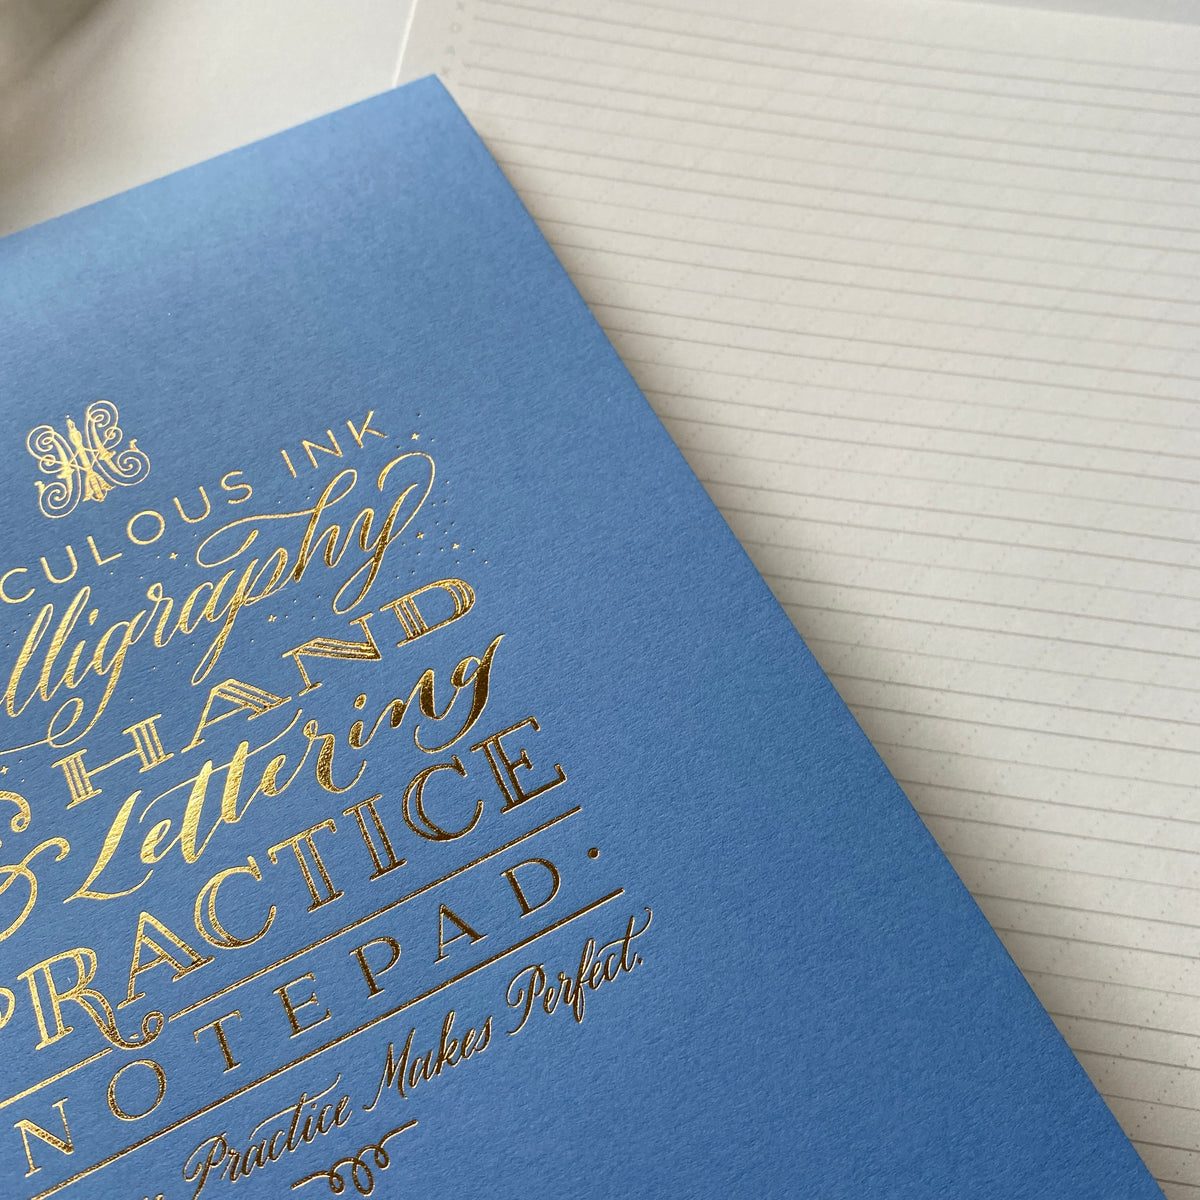 CULOUS INK
lligraphy
HAND
& Lettering
PRACTICE
NOTEPAD.
Practice Makes Perfect.